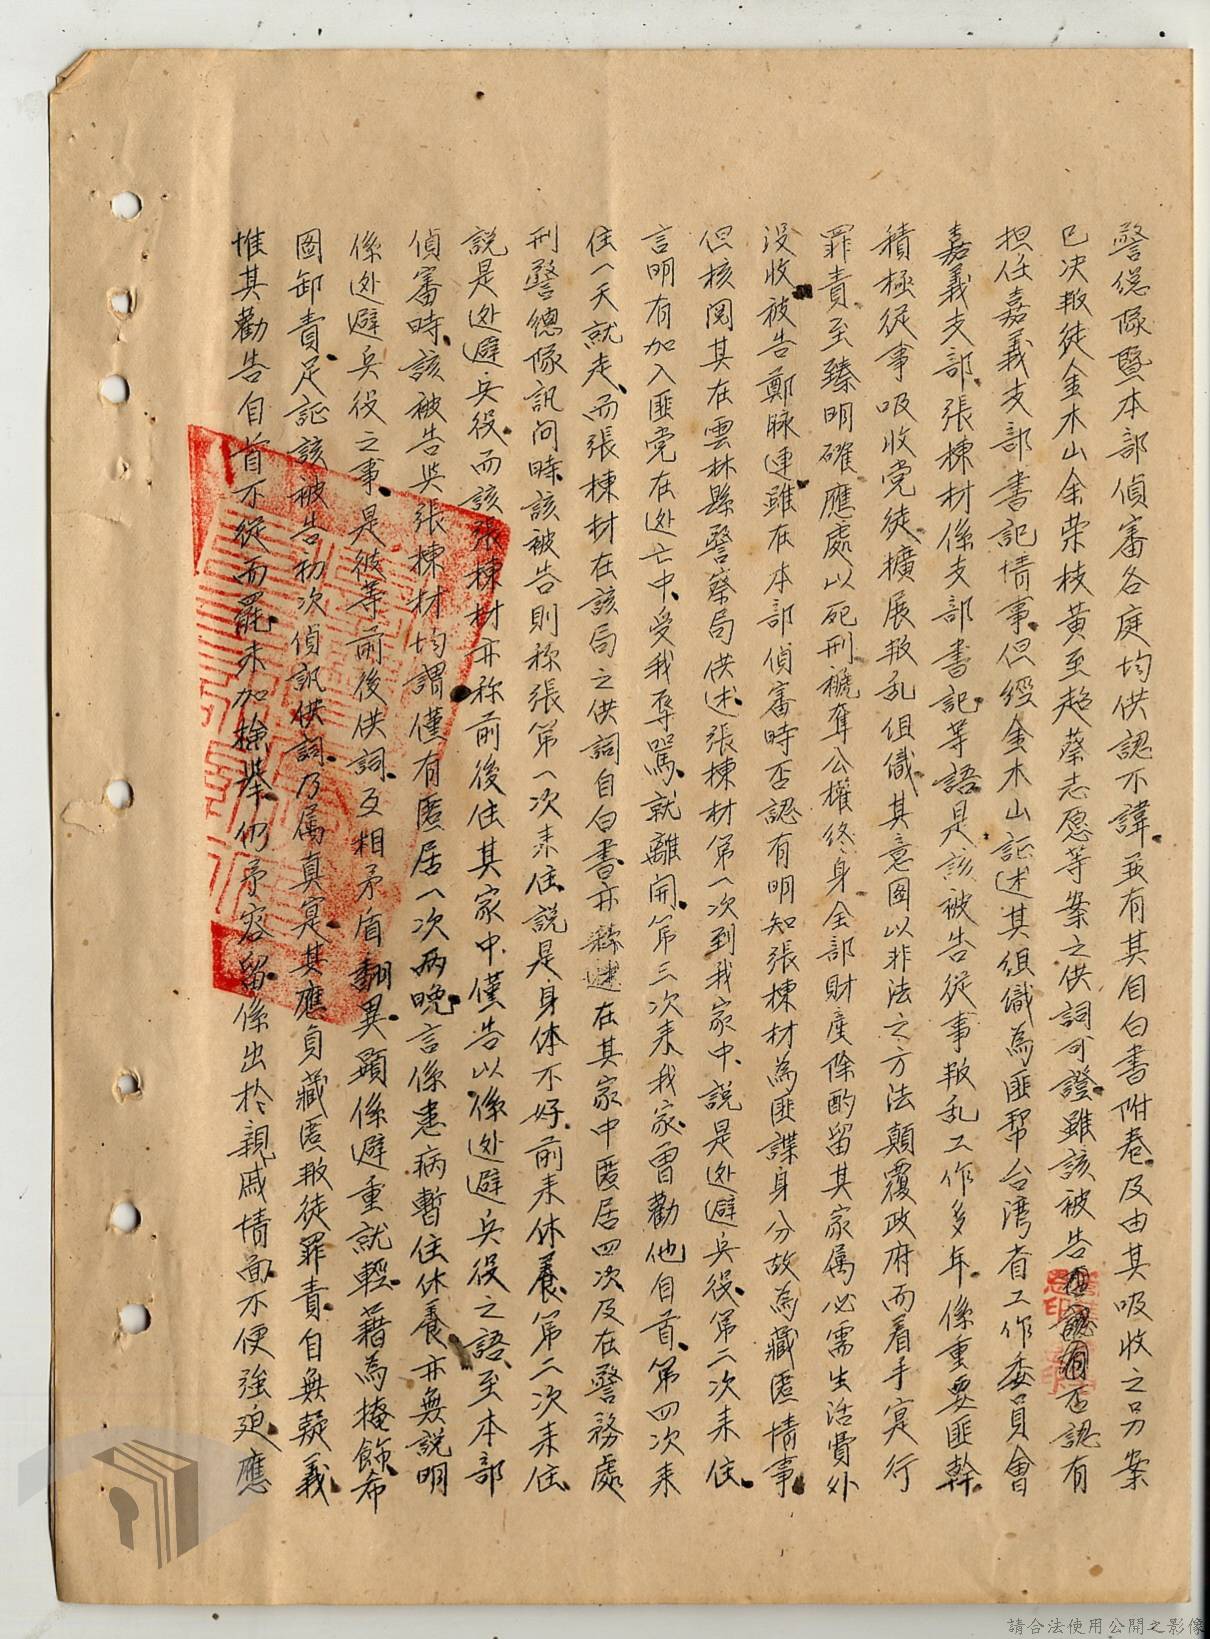 警總隊暨本部偵審各庭均供認不諱並有其自白書附卷及由其吸收之另案
已决叛徒金木山余荣枝黄至超蔡志愿等案之供詞可證雖該被告否認有
担任嘉義支部書記情事但經金木山証述其組織為匪幫台湾省工作委員會
嘉義支部張棟材係支部書記等語是該被告從事叛乱工作多年係重要匪幹
積極從事吸收党徒擴展叛乱组織其意图以非法之方法顛覆政府而着手寔行
罪責至臻明確應處以死刑褫奪公權终身全部財産除酌留其家属必需生活費外
没收被告鄭脉連雖在本部偵審時否認有明知張棟材為匪諜身分故為藏匿情事
但核閱其在雲林縣警察局供述張棟材第一次到我家中說是逃避兵役第二次来住
言明有加入匪党在逃亡中受我辱罵就離開第三次来我家曽勸他自首第四次来
住一天就走而張棟材在該局之供詞自白書亦在其家中匿居四次及在警務處
刑警總隊訊问時該被告則称張第一次来住說是身体不好前来休養第二次来住
說是逃避兵役而該張棟材亦称前後住其家中僅告以係逃避兵役之語至本部
偵審時該被告與張棟材均謂僅有匿居一次両晚言係患病暫住休養亦無說明
係逃避兵役之事是彼等前後供詞互相矛盾翻異顕係避重就輕藉為掩飾希
图卸責足証該被告初次偵訊供詞乃属真寔其應負藏匿叛徒罪責自無疑義
惟其勸告自首不從而罷未加檢舉仍予容留係出於親戚情面不便強迫應
請合法使用公開之影像